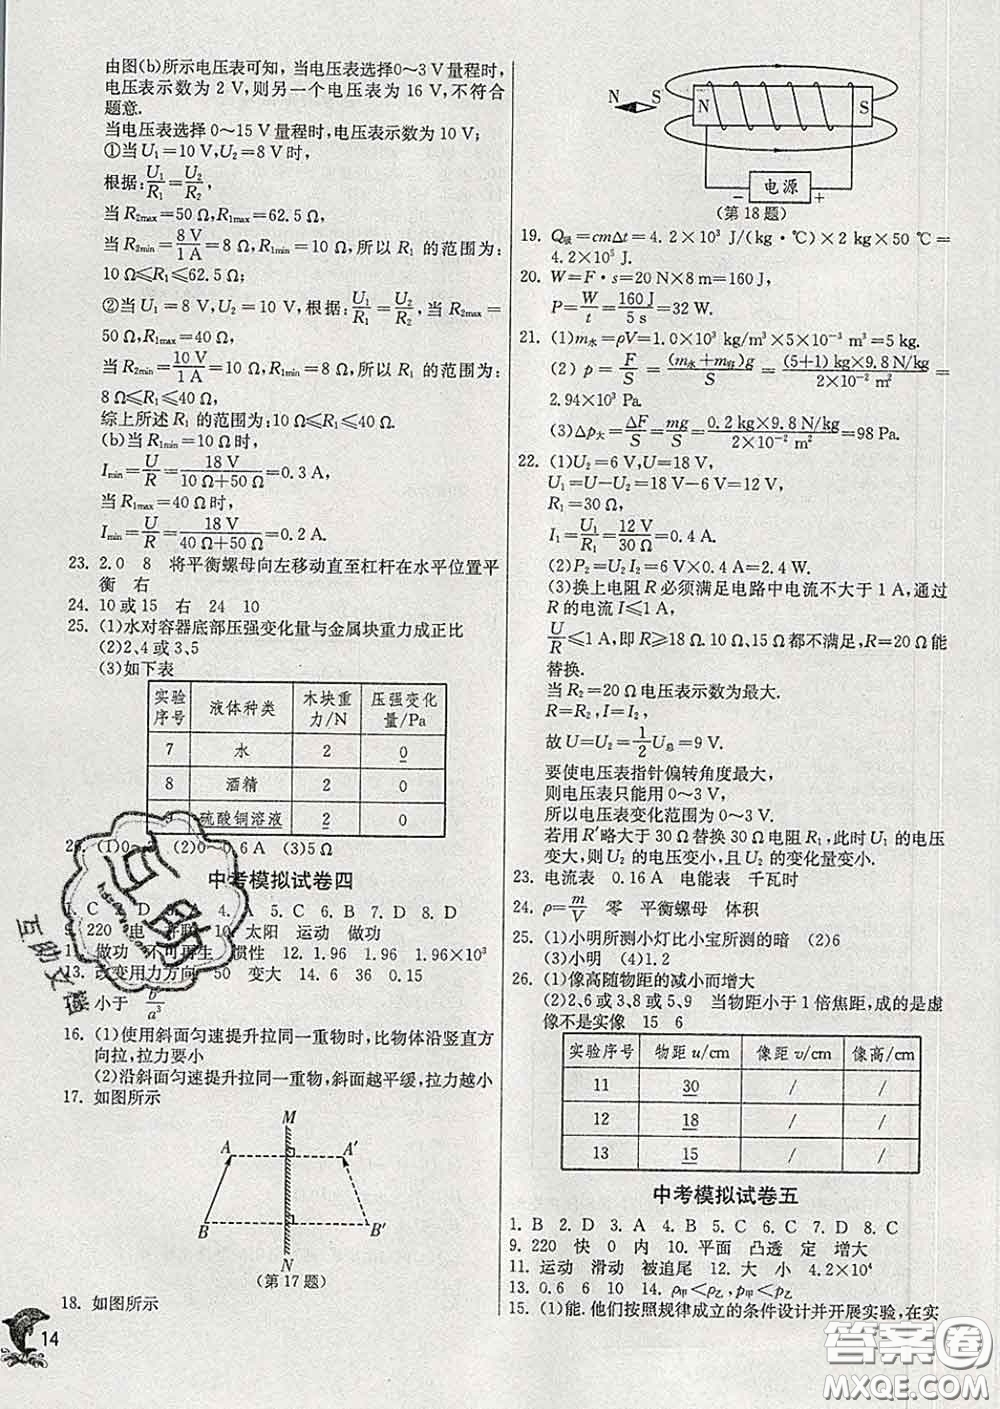 由图(b)所示电压表可知，当电压表选择0～3 V量程时，
电压表示数为 2 V，则另一个电压表为 16 V，不符合
题意.
当电压表选择 0～15 V 量程时，电压表示数为 10 V；
①当 U₁=10 V，U₂=8 V 时，
根据：U₁/R₁=U₂/R₂，
当 R₂max=50 Ω，R₁max=62.5 Ω；
当 R₂min=8 V/1 A=8 Ω，R₁min=10 Ω，所以 R₁ 的范围为：
10 Ω≤R₁≤62.5 Ω；
②当 U₁=8 V，U₂=10 V，根据：U₁/R₁=U₂/R₂，当 R₂max=
50 Ω，R₁max=40 Ω；
当 R₂min=10 V/1 A=10 Ω，R₁min=8 Ω，所以 R₁ 的范围为：
8 Ω≤R₁≤40 Ω.
综上所述 R₁ 的范围为：10 Ω≤R₁≤40 Ω.
(b)当 R₁min=10 Ω时，
Imin=U/R=18 V/(10 Ω+50 Ω)=0.3 A，
当 R₁max=40 Ω时，
Imin=U/R=18 V/(40 Ω+50 Ω)=0.2 A.
23. 2.0 8 将平衡螺母向左移动直至杠杆在水平位置平
衡 右
24. 10或15 右 24 10
25. (1)水对容器底部压强变化量与金属块重力成正比
(2)2、4或3、5
(3)如下表
实验序号 液体种类 木块重力/N 压强变化量/Pa
7 水 2 0
8 酒精 2 0
硫酸铜溶液 2 0
(2)0～0.6 A (3)5 Ω
中考模拟试卷四
C D 4. A 5. C 6. B 7. D 8. D
9. 220 电 并联 10. 太阳 运动 做功
11. 做功 不可再生 惯性 12. 1.96 1.96 1.96×10³
13. 改变用力方向 50 变大 14. 6 36 0.15
小于 b/a³
16. (1)使用斜面匀速提升拉同一重物时，比物体沿竖直方
向拉，拉力要小
(2)沿斜面匀速提升拉同一重物，斜面越平缓，拉力越小
17. 如图所示
M
A A′
B B′
N
(第17题)
18. 如图所示
14
N S N S
－ 电源 ＋
(第18题)
19. Q吸=cmΔt=4.2×10³ J/(kg·℃)×2 kg×50 ℃=
4.2×10⁵ J.
20. W=F·s=20 N×8 m=160 J，
P=W/t=160 J/5 s=32 W.
21. (1)m水=ρV=1.0×10³ kg/m³×5×10⁻³ m³=5 kg.
(2) p=F/S=(m水+m容)g/S=(5+1) kg×9.8 N/kg/2×10⁻² m²=
2.94×10³ Pa.
(3)Δp大=ΔF/S=mg/S=0.2 kg×9.8 N/kg/2×10⁻² m²=98 Pa.
22. (1)U₂=6 V，U=18 V，
U₁=U−U₂=18 V−6 V=12 V，
R₁=30 Ω，
I₁=U₁/R₁=12 V/30 Ω=0.4 A.
(2)P₂=U₂I₂=6 V×0.4 A=2.4 W.
(3)换上电阻 R 必须满足电路中电流不大于 1 A，通过
R 的电流 I≤1 A，
U/R≤1 A，即 R≥18 Ω. 10 Ω、15 Ω都不满足，R=20 Ω能
替换.
当 R₂=20 Ω电压表示数为最大.
R=R₂，I=I₂，
故 U=U₂=1/2U总=9 V.
要使电压表指针偏转角度最大，
则电压表只能用 0～3 V，
所以电压表变化范围为 0～3 V.
若用 R′略大于 30 Ω替换 30 Ω电阻 R₁，此时 U₁ 的电压
变大，则 U₂ 的电压变小，且 U₂ 的变化量变小.
23. 电流表 0.16 A 电能表 千瓦时
24. ρ=m/V 零 平衡螺母 体积
25. (1)小明所测小灯比小宝所测的暗 (2)6
(3)小明 (4)1.2
26. (1)像高随物距的减小而增大
(2)2、6或3、8或5、9 当物距小于 1 倍焦距，成的是虚
像不是实像 15 6
实验序号 物距 u/cm 像距 v/cm 像高/cm
11 30 / /
12 18 / /
13 15 / /
中考模拟试卷五
1. B 2. D 3. A 4. B 5. C 6. C 7. D 8. C
9. 220 快 0 内 10. 平面 凸透 定 增大
11. 运动 滑动 被追尾 12. 大 小 4.2×10⁴
13. 0.6 6 10 14. ρ甲＜ρ乙，p甲＜p乙
15. (1)能. 他们按照规律成立的条件设计并开展实验，在实
答案圈
MXQE.COM